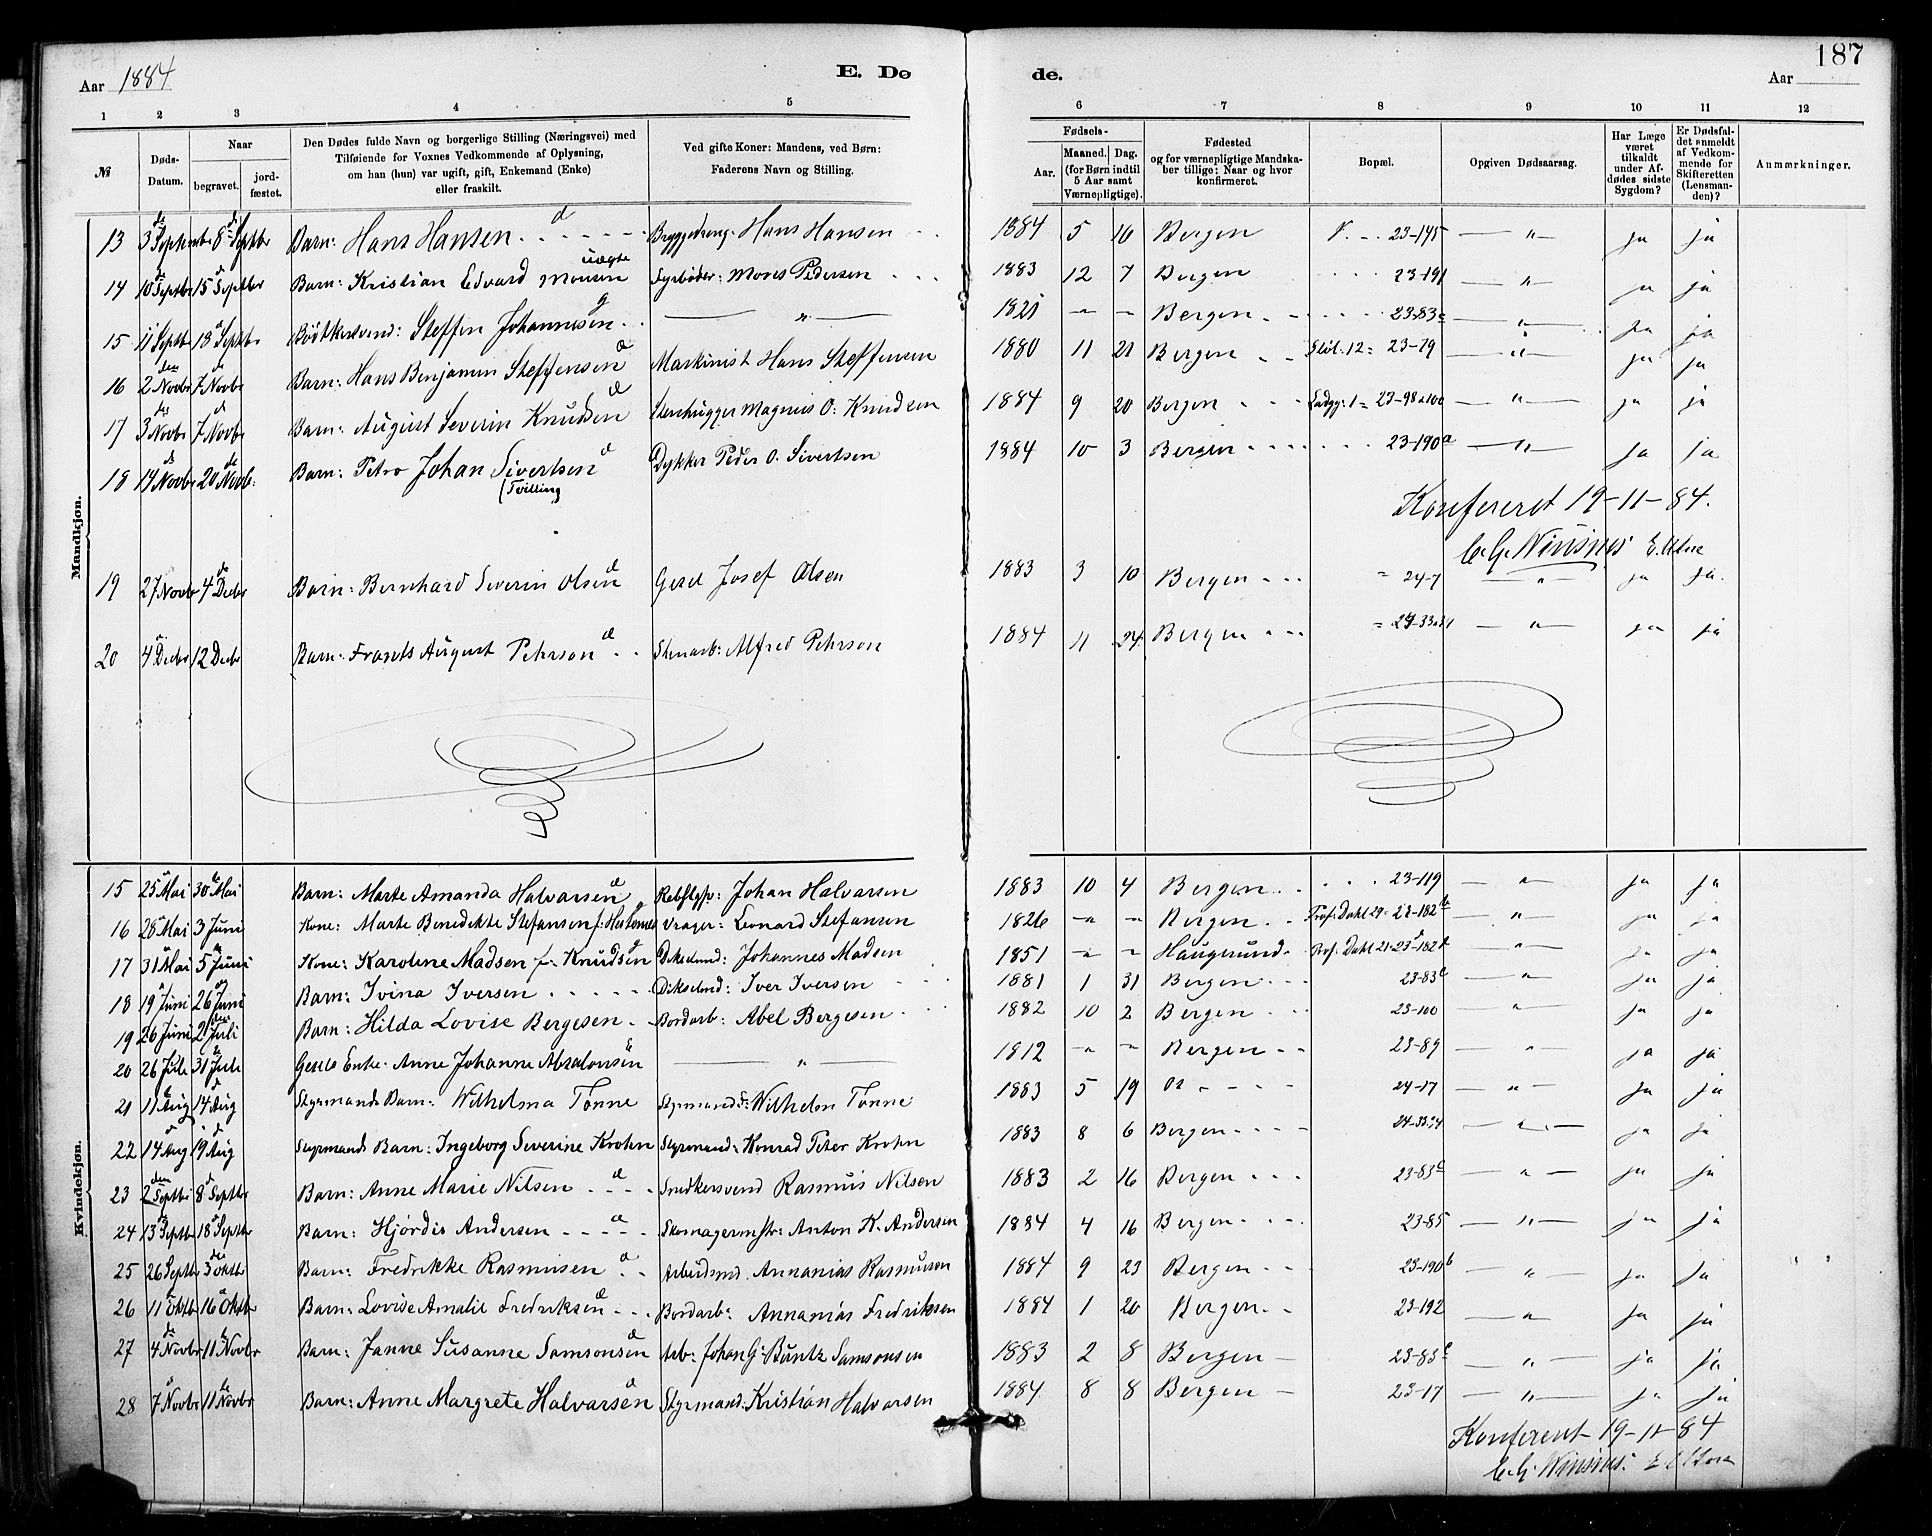 187
Aar 1884 E. Dø de. Aar
1 2 3 4 5 6 7 8 9 10 11 12
№ Døds-Datum. Naar begravet. jord-fæstet. Den Dødes fulde Navn og borgerlige Stilling (Næringsvei) med Tilføiende for Voxnes Vedkommende af Oplysning, om han (hun) var ugift, gift, Enkemand (Enke) eller fraskilt. Ved gifte Koner: Mandens, ved Børn: Faderens Navn og Stilling. Fødsels- Aar. Maaned. Dag. (for Børn indtil 5 Aar samt Værnepligtige). Fødested og for værnepligtige Mandskaber tillige: Naar og hvor konfirmeret. Bopæl. Opgiven Dødsaarsag. Har Læge været tilkaldt under Afdødes sidste Sygdom? Er Dødsfaldet anmeldt af Vedkommende for Skifteretten (Lensmanden)? Anmærkninger.
Mandkjøn.
13 3 Septembr 8 Septbr Barn: Hans Hansen Bryggedreng: Hans Hansen 1884 5 10 Bergen 23-145 " ja ja
14 10 Septbr 15 Septbr Barn: Kristian Edvard Monsen uægte Fyrbøder: Mons Pedersen 1883 12 7 Bergen 23-191 " ja ja
15 11 Septbr 18 Septbr Bødkersvend: Steffen Johannesen g " 1821 " " Bergen 23-83c " ja ja
16 2 Novbr 7 Novbr Barn: Hans Benjamin Steffensen Maskinist Hans Steffensen 1880 11 21 Bergen 12 = 23-79 " ja ja
17 3 Novbr 7 Novbr Barn: August Severin Knudsen Stenhugger Magnus O. Knudsen 1884 9 20 Bergen 23-98 " ja ja
18 14 Novbr 20 Novb: Barn: Petro Johan Sivertsen (Tvilling Dykker Peder O. Sivertsen 1884 10 3 Bergen 23-190a " ja ja
Konfereret 19-11-84.
19 27 Novbr 4 Decbr Barn: Bernhard Severin Olsen Gesel Josef Olsen 1883 3 10 Bergen = 24-7 " ja ja.
20 4 Decbr 12 Decbr Barn: Frants August Pehrson Stenarb: Alfred Pehrson 1884 11 24 Bergen " ja ja
Kvindekjøn.
15 25 Mai 30 Mai Barn: Marte Amanda Halvarsen Johan Halvarsen 1883 10 4 Bergen 23-119 " ja ja
16 28 Mai 3 Juni Kone: Marte Benedikte Stefansen f: Vrager: Leonard Stefansen 1826 " " Bergen Prof: Dahl 29 " ja ja
17 31 Mai 5 Juni Kone: Karoline Madsen f. Knudsen Johannes Madsen 1851 " " Haugesund Prof. Dahl 21 " ja ja
18 19 Juni 26 Juni Barn: Ivina Iversen Iver Iversen 1881 1 31 Bergen 23-83c " ja ja
19 26 Juni 2 Juli Barn: Hilda Lovise Bergesen Bordarb: Abel Bergesen 1882 10 2 Bergen 23-100 " ja ja
20 26 Juli 31 Juli Gesels Enke: Anne Johanne Absalonsen " 1812 " " Bergen 23-89 " ja ja
21 11 Aug 14 Aug Styrmands Barn: Wilhelma Tønne Styrmand: Wilhelm Tønne 1883 5 19 24-17 " ja ja
22 14 Aug 19 Aug Styrmands Barn: Ingeborg Severine Krohn Styrmand: Konrad Peter Krohn 1883 8 6 Bergen " ja ja
23 2 Septbr 8 Septbr Barn: Anne Marie Nilsen Snedkersvend Rasmus Nilsen 1883 2 16 Bergen 23-83c " ja ja
24 13 Septbr 18 Septbr Barn: Hjørdis Andersen Skomagermstr: Anton K. Andersen 1884 4 16 Bergen 23-85 " ja ja
25 26 Septbr 3 Oktbr Barn: Fredrikke Rasmusen Arbeidsmd. Annanias Rasmusen 1884 9 23 Bergen 23-190b " ja ja
26 11 Oktbr 16 Oktbr Barn: Lovise Amalie Fredriksen Bordarb: Annanias Fredriksen 1884 1 20 Bergen 23-192 " ja ja
27 4 Novbr 11 Novbr Barn: Janne Susanne Samsonsen Arb: Johan G: Buntz Samsonsen 1883 2 8 Bergen 23-83c " ja ja
28 7 Novbr 11 Novbr Barn: Anne Margrete Halvarsen Styrmand: Kristian Halvarsen 1884 8 8 Bergen 23-17 " ja ja
Konfereret 19-11-84